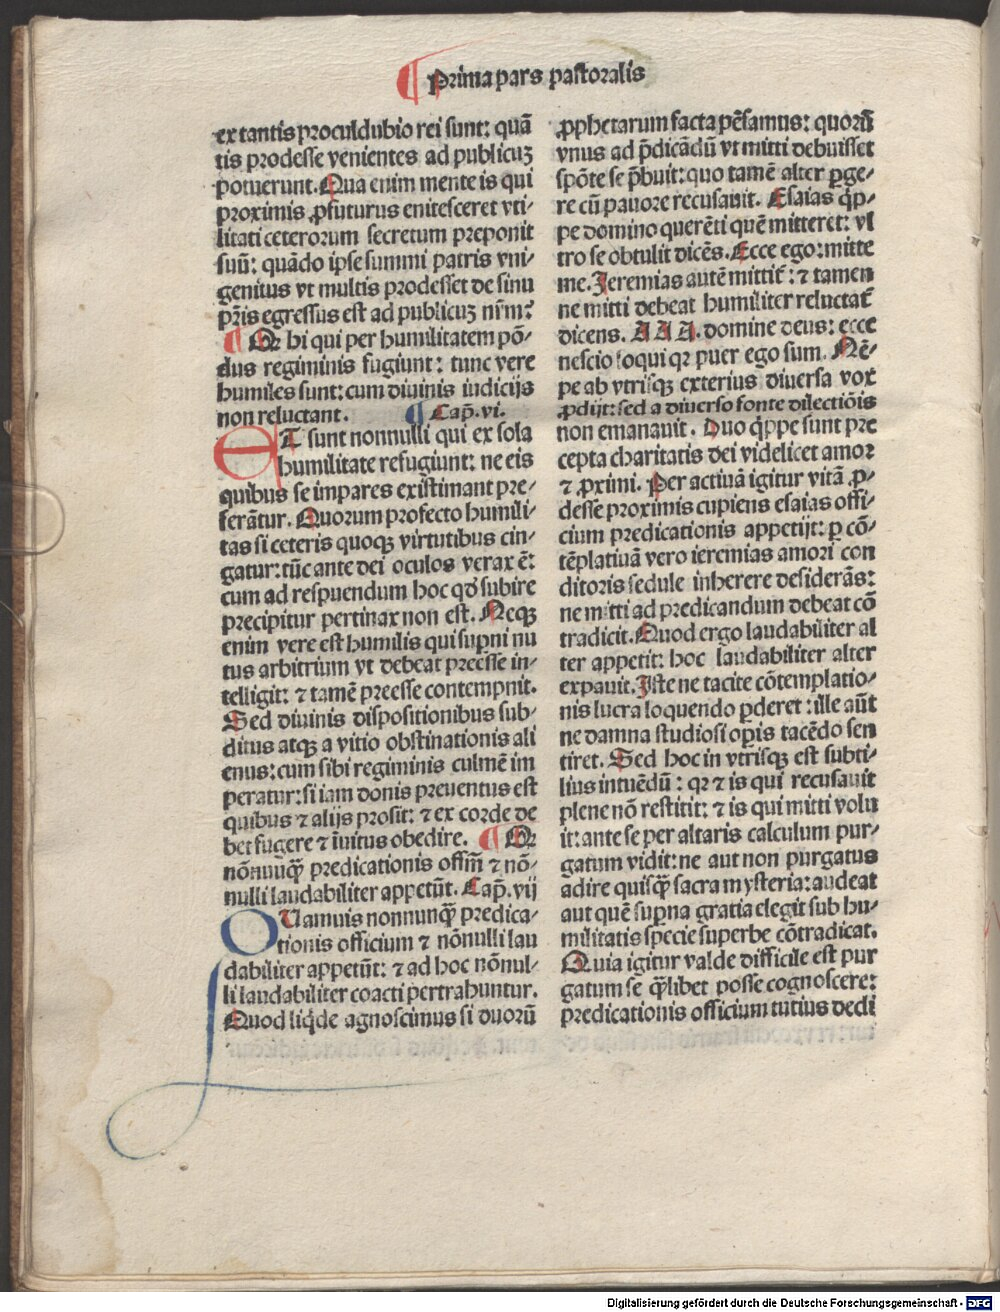 ¶ Prima pars pastoralis
ex tantis proculdubio rei sunt: quā
tis prodesse venientes ad publicuꝫ
potuerunt. Qua enim mente is qui
proximis ꝓfuturus enitesceret vti⸗
litati ceterorum secretum preponit
suū: quādo ipse summi patris vni⸗
genitus vt multis prodesset de sinu
pr̄is egressus est ad publicuꝫ nr̄m?
¶ Qꝫ hi qui per humilitatem pō⸗
dus regiminis fugiunt: tunc vere
humiles sunt: cum diuinis iudicijs
non reluctant. ¶ Cap̄. vi.
ET sunt nonnulli qui ex sola
humilitate refugiunt: ne eis
quibus se impares existimant pre⸗
ferāntur. Quorum profecto humili⸗
tas si ceteris quoqꝫ virtutibus cin⸗
gatur: tūc ante dei oculos verax ē:
cum ad respuendum hoc qd̄ subire
precipitur pertinax non est. Neqꝫ
enim vere est humilis qui sup̄ni nu
tus arbitrium vt debeat preesse in⸗
telligit: ⁊ tamē preesse contempnit.
Sed diuinis dispositionibus sub⸗
ditus atqꝫ a vitio obstinationis ali
enus: cum sibi regiminis culmē im
peratur: si iam donis preuentus est
quibus ⁊ alijs prosit: ⁊ ex corde de
bet fugere ⁊ īuitus obedire. ¶ Qꝫ
nōnūqꝫ̄ predicationis offm̄ ⁊ nō⸗
nulli laudabiliter appetūt. Cap̄. vij
QUamuis nonnunqꝫ̄ predica⸗
tionis officium ⁊ nōnulli lau
dabiliter appetūt: ⁊ ad hoc nōnul⸗
li laudabiliter coacti pertrahuntur.
Quod liq̇de agnoscimus si duorū
ꝓphetarum facta pēsamus: quorū
vnus ad p̄dicādū vt mitti debuisset
spōte se p̄buit: quo tamē alter ꝑge⸗
re cū pauore recusauit. Esaias q̇p⸗
pe domino querēti quē mitteret: vl
tro se obtulit dicēs. Ecce ego: mitte
me. Jeremias autē mittit̄: ⁊ tamen
ne mitti debeat humiliter reluctat̄
dicens. A A A. domine deus: ecce
nescio loqui qꝛ puer ego sum. Nē⸗
pe ab vtrisqꝫ exterius diuersa vox
ꝓdijt: sed a diuerso fonte dilectiōis
non emanauit. Duo q̇ppe sunt pre
cepta charitatis dei videlicet amor
⁊ ꝓximi. Per actiuā igitur vitā ꝓ⸗
desse proximis cupiens esaias offi⸗
cium predicationis appetijt: ꝑ cō⸗
tēplatiuā vero ieremias amori con
ditoris sedule inherere desiderās:
ne mitti ad predicandum debeat cō
tradicit. Quod ergo laudabiliter al
ter appetit: hoc laudabiliter alter
expauit. Iste ne tacite cōtemplatio⸗
nis lucra loquendo ꝑderet: ille aūt
ne damna studiosi oꝑis tacēdo sen
tiret. Sed hoc in vtrisqꝫ est subti⸗
lius intuēdū: qꝛ ⁊ is qui recusauit
plene nō restitit: ⁊ is qui mitti volu
it: ante se per altaris calculum pur⸗
gatum vidit: ne aut non purgatus
adire quisqꝫ̄ sacra mysteria: audeat
aut quē sup̄na gratia elegit sub hu⸗
militatis specie superbe cōtradicat.
Quia igitur valde difficile est pur
gatum se qꝫ̄libet posse cognoscere:
predicationis officium tutius decli
Digitalisierung gefördert durch die Deutsche Forschungsgemeinschaft - DFG